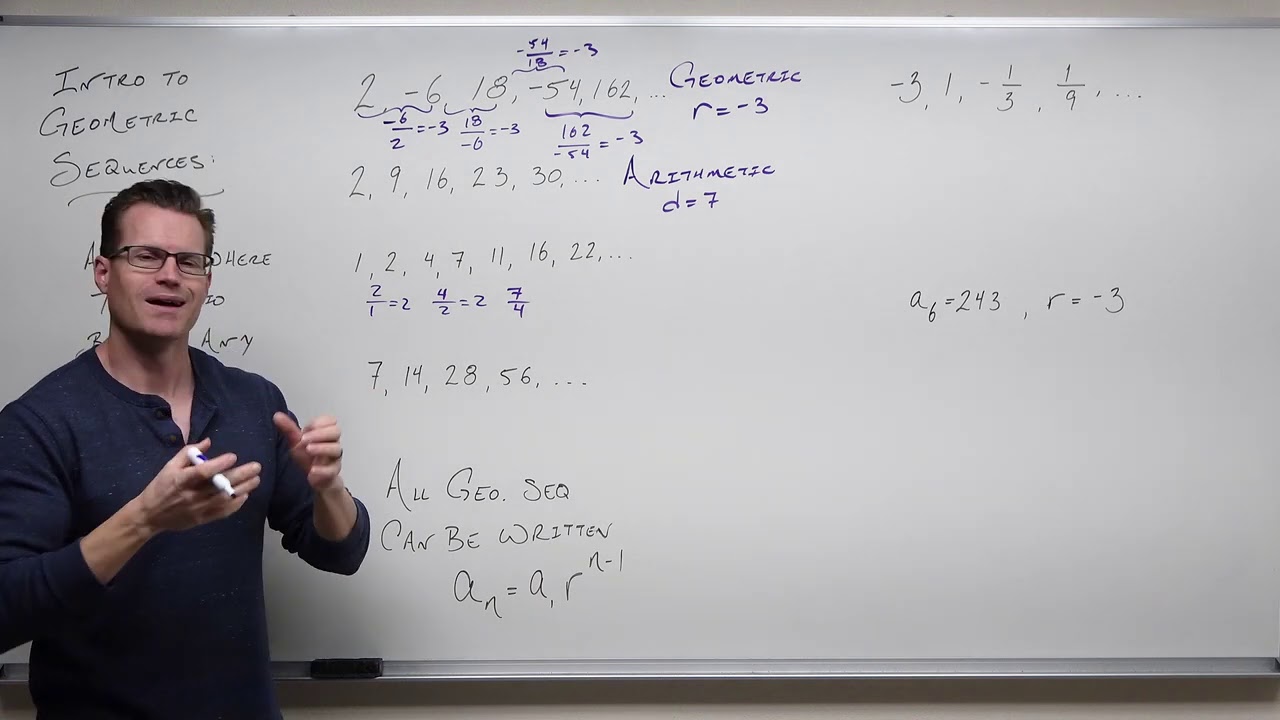 INTRO TO
GEOMETRIC
SEQUENCES:
HERE
ANY
-54/18 = -3
2, -6, 18, -54, 162, ... GEOMETRIC
r = -3
-6/2 = -3 18/-6 = -3 162/-54 = -3
2, 9, 16, 23, 30, ... ARITHMETIC
d = 7
1, 2, 4, 7, 11, 16, 22, ...
2/1 = 2 4/2 = 2 7/4
7, 14, 28, 56, ...
ALL GEO. SEQ
CAN BE WRITTEN
aₙ = a₁ rⁿ⁻¹
-3, 1, -1/3, 1/9, ...
a₆ = 243 , r = -3